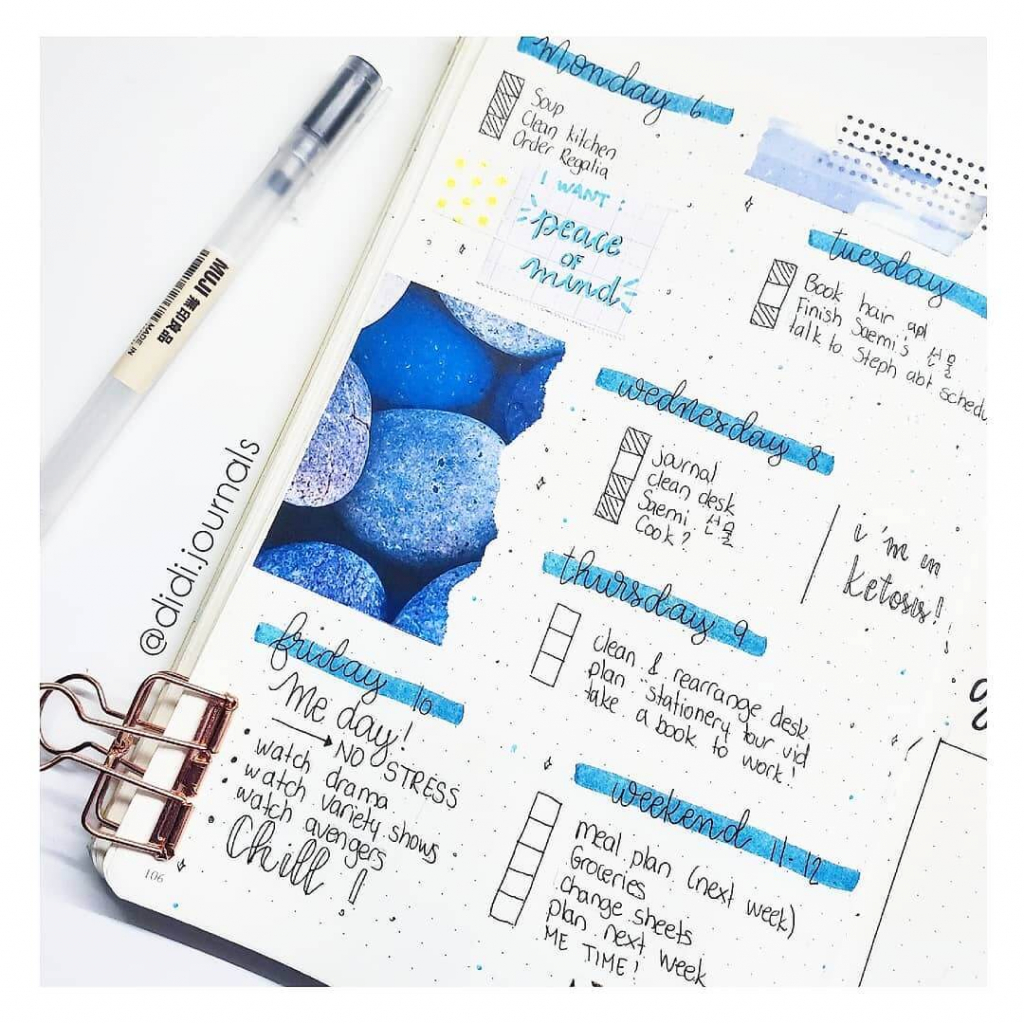 Monday 6
Soup
Clean kitchen
Order Regalia
I WANT
peace
OF
mind
tuesday
Book hair
Finish Saemi's 선물
talk to Steph abt schedu
wednesday 8
journal
clean desk
Saemi 선물
Cook?
i'm in
ketosis!
thursday 9
clean & rearrange desk
plan stationery tour vid
take a book to work!
friday 10
Me day!
NO STRESS
watch drama
watch variety shows
watch avengers
Chill!
weekend 11-12
meal plan (next week)
Groceries
change sheets
plan next week
ME TIME!
106
@didi.journals
MUJI 無印良品
MADE IN